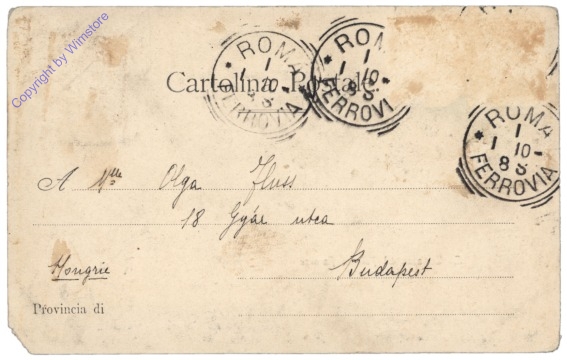 Copyright by Wimstore
* ROMA
1
1 10
8 S
FERROVIA
* ROMA
1
1 10-
8 S
FERROVI
Cartolina Postale.
* ROMA
1
1 10-
8 S
FERROVIA
A Mlle Olga Fluss
18 Gyár utca
Hongrie Budapest
Provincia di